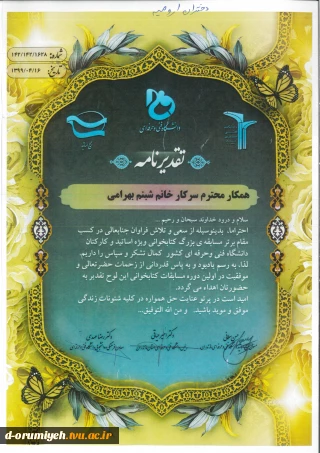 دختران ارومیه
شماره: ۱۴۲/۱۴۲/۱۶۳۸
تاریخ: ۱۳۹۹/۰۴/۱۶
تقدیرنامه
همکار محترم سرکار خانم شبنم بهرامی
سلام و درود خداوند سبحان و رحیم ...
احتراما، بدینوسیله از سعی و تلاش فراوان جنابعالی در کسب
مقام برتر مسابقه ی بزرگ کتابخوانی ویژه اساتید و کارکنان
دانشگاه فنی وحرفه ای کشور کمال تشکر و سپاس را داریم.
لذا، به رسم یادبود و به پاس قدردانی از زحمات حضرتعالی و
موفقیت در اولین دوره مسابقات کتابخوانی این لوح تقدیر به
حضورتان اهداء می گردد.
امید است در پرتو عنایت حق همواره در کلیه شئونات زندگی
موفق و موید باشید. و من الله التوفیق...
d-orumiyeh.tvu.ac.ir